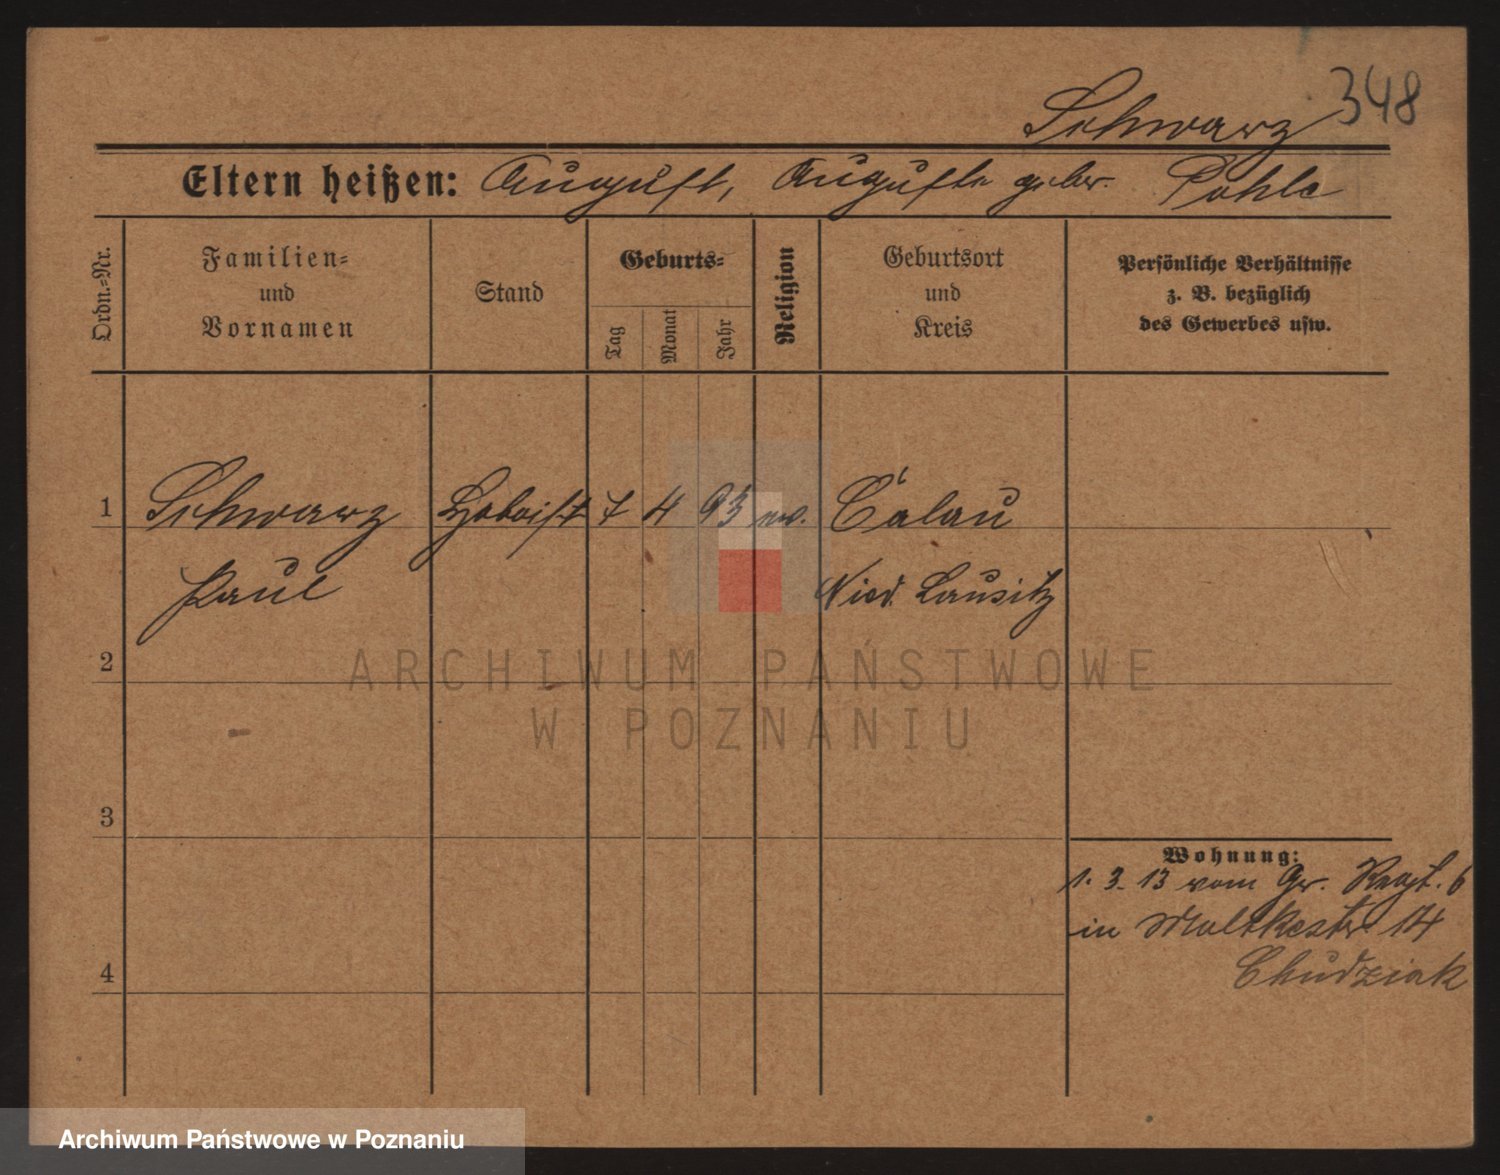 Schwarz 348
Eltern heißen: August, Auguste geber. Pohle
Ordn.=Nr.
Familien=
und
Vornamen
Stand
Geburts=
Tag
Monat
Jahr
Religion
Geburtsort
und
Kreis
Persönliche Verhältnisse
z. B. bezüglich
des Gewerbes usw.
1 Schwarz Hoboist 7 4 93 ev. Calau
Paul Nied. Lausitz
2
3
4
Wohnung:
1. 3. 13 vom Gr. Regt. 6
in Moltkestr 14
Chudziak
ARCHIWUM PAŃSTWOWE
W POZNANIU
Archiwum Państwowe w Poznaniu